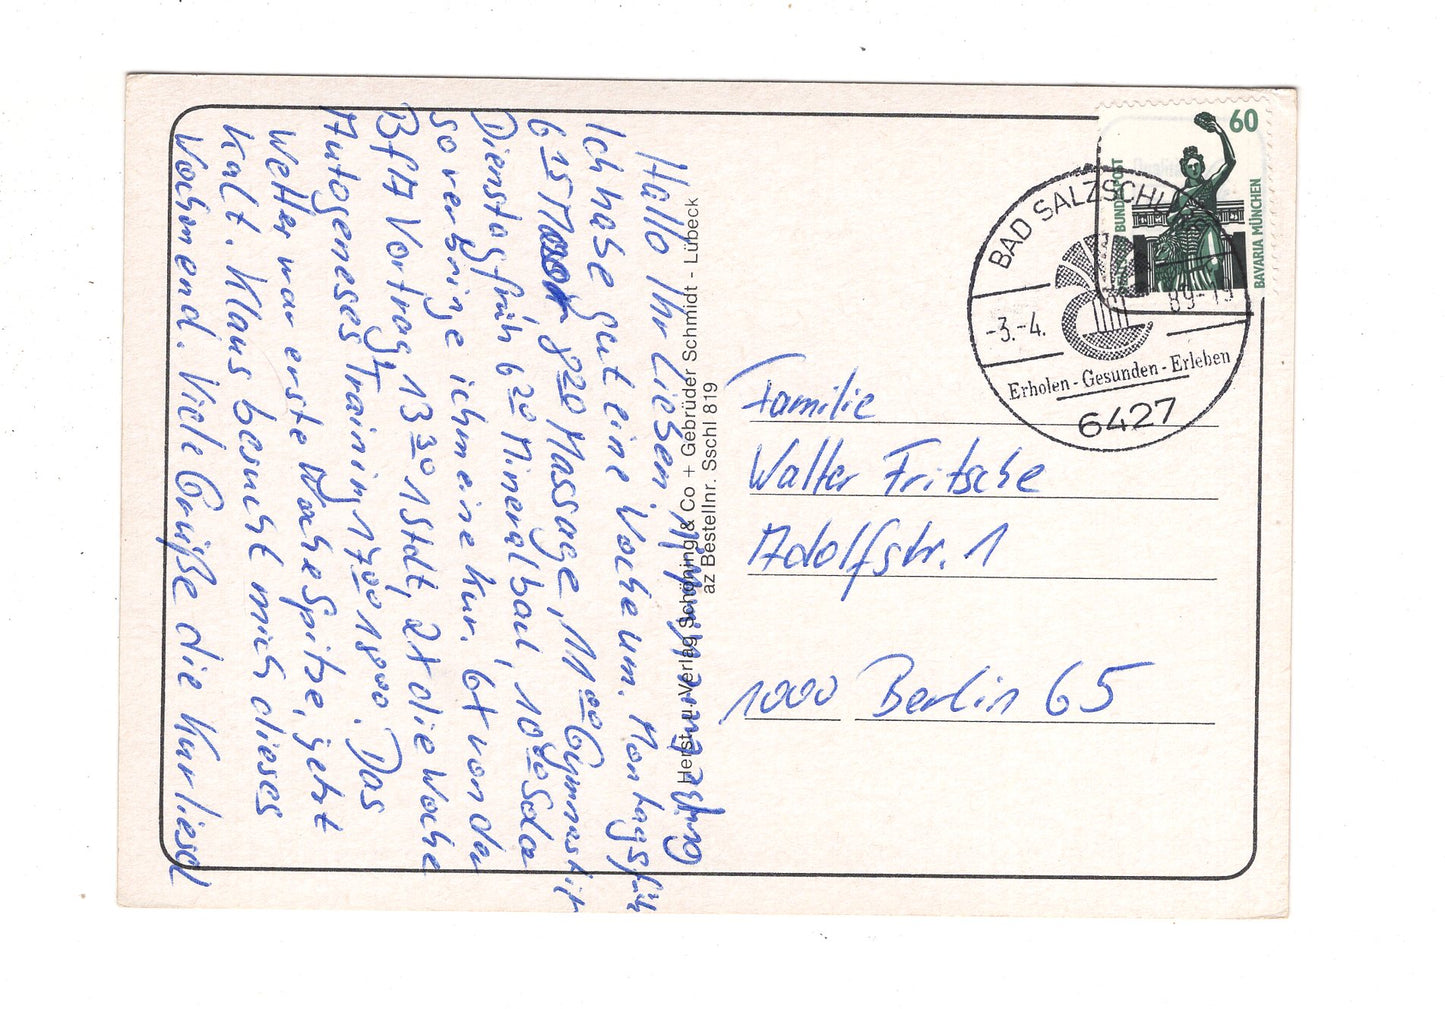 Hallo Ihr Lieben,
Ich habe gut eine Woche um. Montags früh
6 15 Moor 8 20 Massage, 11 00 Gymnastik
Dienstag früh 6 20 Mineralbad, 10 40 Sole
so verbringe ich meine Kur. 6x von der
BfA Vortrag 13 30 1 Std, 2x die Woche
Autogenes Training 17 00 18 00. Das
Wetter war erste Woche Spitze, jetzt
kalt. Klaus besucht mich dieses
Wochenend. Viele Grüße die Kurliesel
Herst. u. Verlag Schöning & Co + Gebrüder Schmidt - Lübeck
az Bestellnr. Sschl 819
60
BUNDESPOST
BAVARIA MÜNCHEN
BAD SALZSCHL
-3.-4.
89-19
Erholen - Gesunden - Erleben
6427
Familie
Walter Fritsche
Adolfstr. 1
1000 Berlin 65